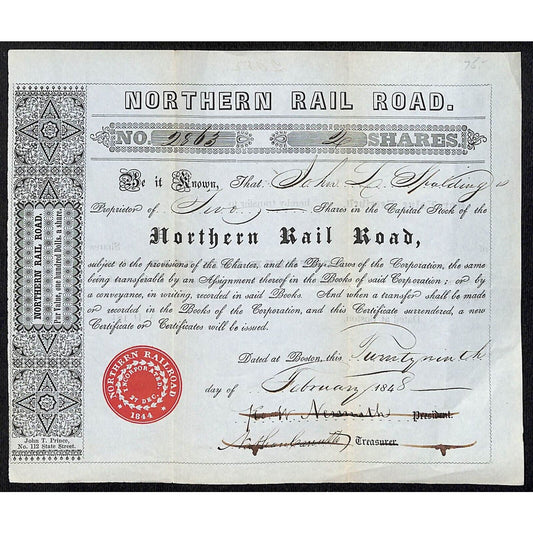 76-
NORTHERN RAIL ROAD.
NO. 2863 2 SHARES.
Be it Known, That John L. Spalding is
Proprietor of Two Shares in the Capital Stock of the
Northern Rail Road,
subject to the provisions of the Charter, and the By-Laws of the Corporation, the same
being transferable by an Assignment thereof in the Books of said Corporation; or by
a conveyance, in writing, recorded in said Books. And when a transfer shall be made
or recorded in the Books of the Corporation, and this Certificate surrendered, a new
Certificate or Certificates will be issued.
Dated at Boston, this Twentyninth
day of February 1848
President.
Treasurer.
NORTHERN RAILROAD
INCORPORATED
27 DEC.
1844
NORTHERN RAIL ROAD.
Par Value, one hundred Dolls. a share.
John T. Prince,
No. 112 State Street.